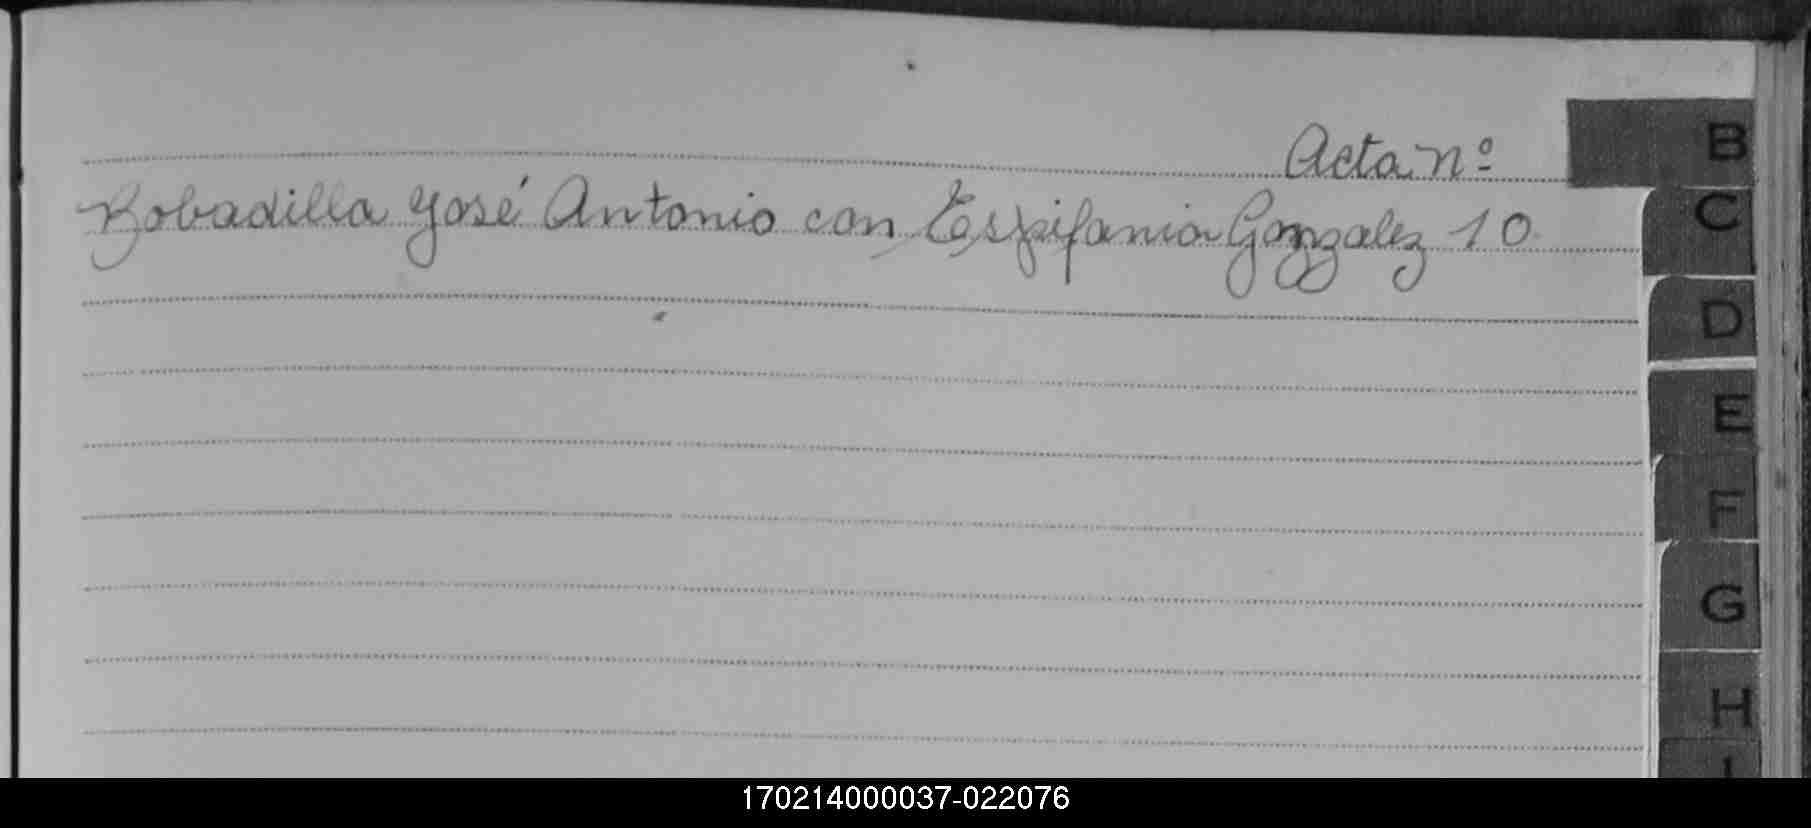 Acta nº
Bobadilla José Antonio con Espifania Gonzalez 10
B
C
D
E
F
G
H
I
170214000037-022076